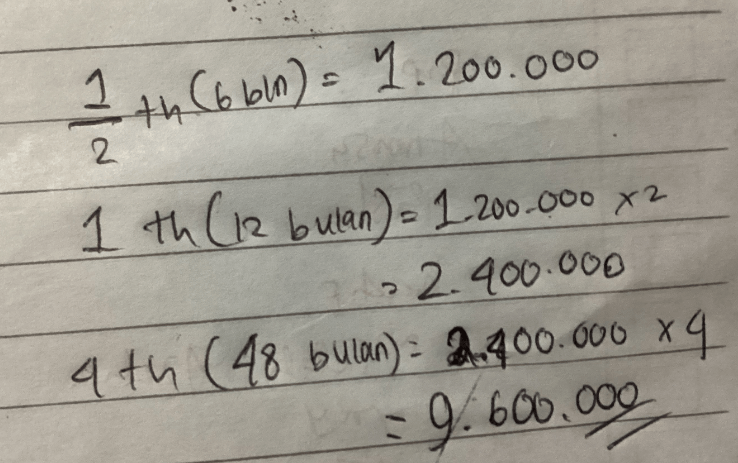 1/2 th (6 bln) = 1.200.000
1 th (12 bulan) = 1.200.000 x 2
= 2.400.000
4 th (48 bulan) = 2.400.000 x 4
= 9.600.000